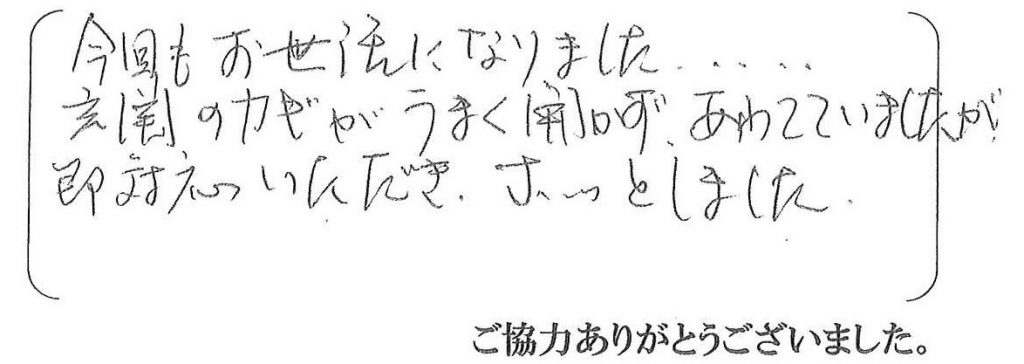 今回もお世話になりました......
玄関のカギがうまく開かず、あわてていましたが
即対応いただき、ホッとしました.
ご協力ありがとうございました。